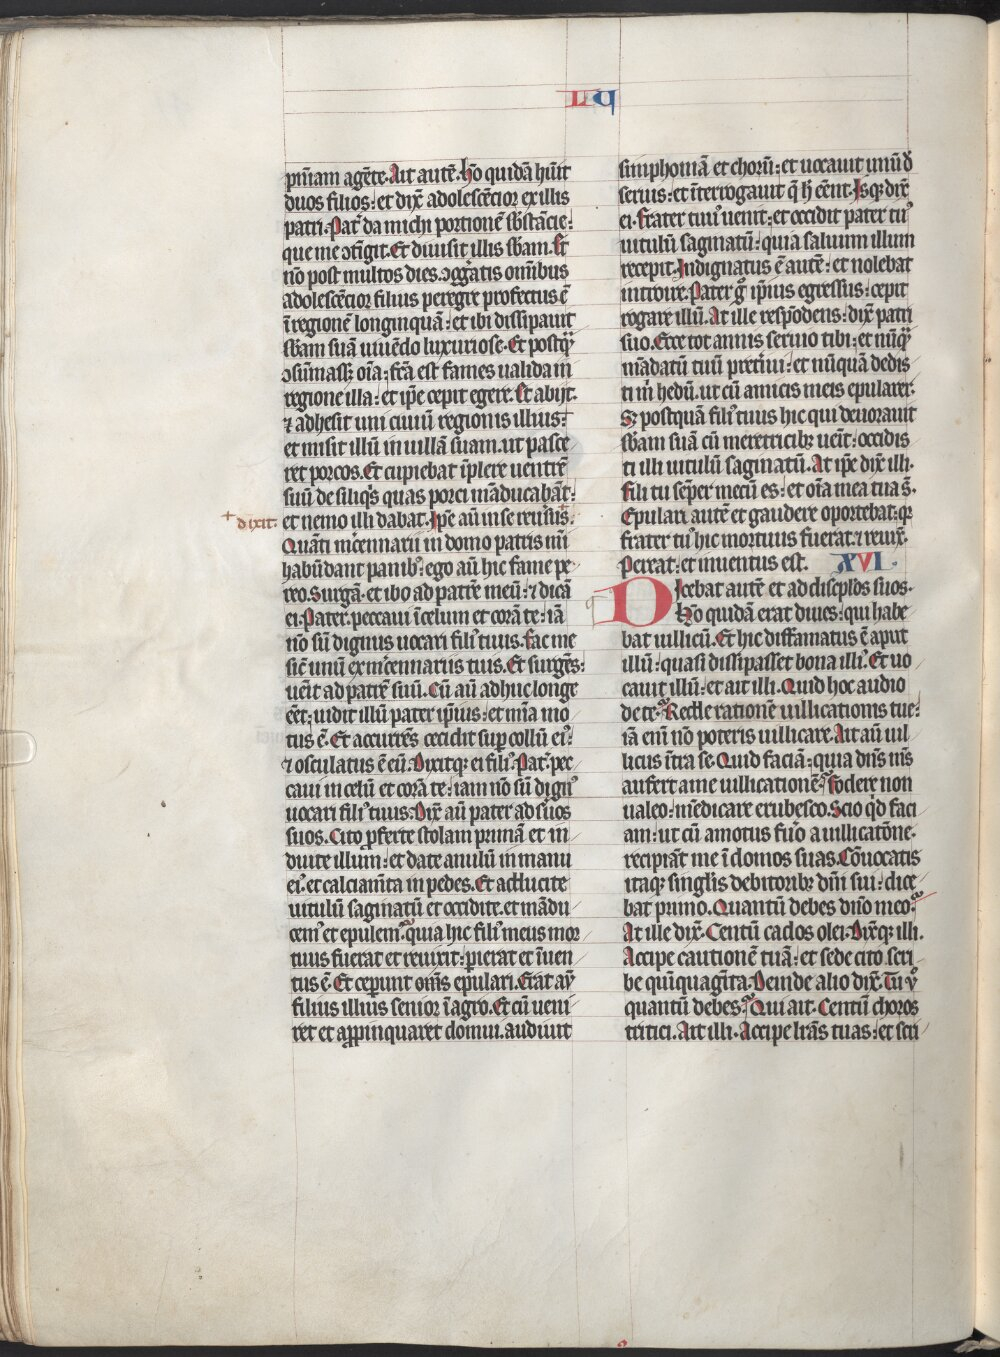 L q
pn̄iam agēte. Ait autē. Hō quidā hūit
duos filios: et dix̄ adolescētior ex illis
patri. Pat̄ da michi portionē sb̄stācie:
que me ↄtigit. Et diuisit illis sb̄am. Et
nō post multos dies. ↄgg̃atis omībus
adolescētior filius peregre profectus ē
ī regionē longinquā: et ibi dissipauit
sb̄am suā uiuēdo luxuriose. Et postq̄ꝫ
ↄsūmass; oīa: fc̄a est fames ualida in
regione illa: et ip̄e cepit egere. Et abijt.
⁊ adhesit uni ciuiū regionis illius:
et misit illū in uillā suam. ut pasce
ret porcos. Et cupiebat īplere uentrē
suū de siliq̄s quas porci māducabāt:
et nemo illi dabat. Ip̄e aū in se reu̓sus.
+ dixit:
Quāti mc̓ennarii in domo patris m̄i
habūdant panib᷒: ego aū hic fame pe
reo. Surgā. et ibo ad patrē meū: ⁊ dicā
ei. Pater. peccaui ī celum et corā te: iā
nō sū dignus uocari fili᷒ tuus. Fac me
sic̄ unū ex mc̓ennariis tuis. Et surgēs:
uēit ad patrē suū. Cū aū adhuc longe
ēēt. uidit illū pater ip̄ius: et mīa mo
tus ē. Et accurrēs cecidit sup̱ collū ei᷒:
⁊ osculatus ē eū. Dixitq; ei fili᷒. Pat̄. pec
caui in celū et corā te: iam nō sū dign᷒
uocari fili᷒ tuus. Dix̄ aū pater ad suos
suos. Cito ꝓferte stolam primā et in
duite illum: et date anulū in manu
ei᷒. et calciamn̄ta in pedes. Et adducite
uitulū saginatū et occidite. et mādu
cem᷒ et epulem᷒. quia hic fili᷒ meus mor
tuus fuerat et reuixit: pierat et īuen
tus ē. Et ceperunt om̄s epulari. Erat aū
filius illius senior ī agro. Et cū ueni
ret et appinquaret domui. audiuit
simphoniā et chorū: et uocauit unū d̄
seruis: et īterrogauit q̄ h̄ cēnt. Isq; dix̄
ei. Frater tuu᷒ uenit: et occidit pater tu᷒
uitulū saginatū: quia saluum illum
recepit. Indignatus ē autē: et nolebat
introire. Pater g̊ ip̄ius egressus: cepit
rogare illū. At ille respōdens: dix̄ patri
suo. Ecce tot annis seruio tibi: et nūq̄ꝫ
mādatū tuū pret̓iui: et nūquā dedis
ti m̄ hedū. ut cū amicis meis epularer.
S; postquā fili᷒ tuus hic qui deuorauit
sb̄am suā cū meretricib; uēit: occidis
ti illi uitulū saginatū. At ip̄e dix̄ illi.
Fili tu sep̄er mecū es: et oīa mea tua s̄.
Epulari autē et gaudere oportebat: q̄
frater tu᷒ hic mortuus fuerat. ⁊ reuix̄.
Pereat: et inuentus est. XVI.
Dicebat autē et ad discip̄los suos.
Hō quidā erat diues: qui habe
bat uillicū. Et hic diffamatus ē aput
illū: quasi dissipasset bona illi᷒. Et uo
cauit illū: et ait illi. Quid hoc audio
de te. Redde rationē uillicationis tue:
iā eni nō poteris uillicare. Ait aū uil
licus ītra se. Quid faciā: quia dn̄s m̄s
aufert a me uillicationē. Fodere non
ualeo: mēdicare erubesco. Scio q̄d faci
am: ut cū amotus fuo̓ a uillicatōne.
recipiāt me ī domos suas. Cōuocatis
itaq; singlis debitorib; dn̄i sui: dice
bat primo. Quantū debes dn̄o meo.
At ille dix̄. Centū cados olei. Dix̄q; illi.
Accipe cautionē tuā: et sede cito scri
be quīquagīta. Deinde alio dix̄. Tu v̊
quantū debes. Qui ait. Centū choros
tritici. Ait illi. Accipe lr̄as tuas: et scri